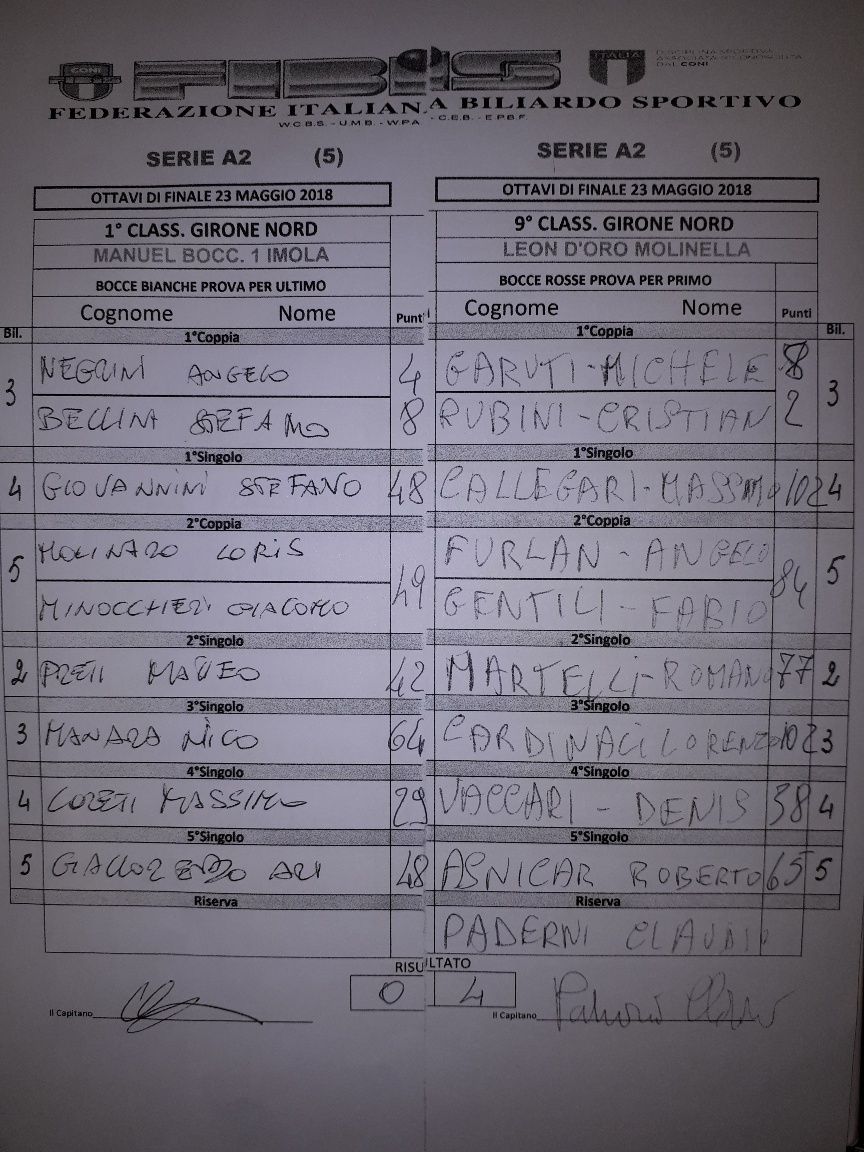 CONI
FIBiS
ITALIA
DISCIPLINA SPORTIVA
ASSOCIATA RICONOSCIUTA
DAL CONI
FEDERAZIONE ITALIANA BILIARDO SPORTIVO
W.C.B.S. - U.M.B. - W.P.A. - C.E.B. - E.P.B.F.
SERIE A2 (5)
OTTAVI DI FINALE 23 MAGGIO 2018
1° CLASS. GIRONE NORD
MANUEL BOCC. 1 IMOLA
BOCCE BIANCHE PROVA PER ULTIMO
Cognome Nome Punti
Bil.
1°Coppia
3
NEGRINI ANGELO 4
BELLINI STEFANO 8
1°Singolo
4 GIOVANNINI STEFANO 48
2°Coppia
5
MOLINARO LORIS
49
MINOCCHERI GIACOMO
2°Singolo
2 PRETI MATTEO 42
3°Singolo
3 MANARA NICO 64
4°Singolo
4 LORETI MASSIMO 29
5°Singolo
5 48
Riserva
SERIE A2 (5)
OTTAVI DI FINALE 23 MAGGIO 2018
9° CLASS. GIRONE NORD
LEON D'ORO MOLINELLA
BOCCE ROSSE PROVA PER PRIMO
Cognome Nome Punti
Bil.
1°Coppia
GARUTI-MICHELE 8
3
RUBINI-CRISTIAN 2
1°Singolo
CALLEGARI-MASSIMO 102 4
2°Coppia
FURLAN - ANGELO
84 5
GENTILI - FABIO
2°Singolo
MARTELLI-ROMANO 77 2
3°Singolo
CARDINALI LORENZO 102 3
4°Singolo
VACCARI - DENIS 38 4
5°Singolo
ASNICAR ROBERTO 65 5
Riserva
PADERNI CLAUDIO
RISULTATO
0 4
Il Capitano
Il Capitano